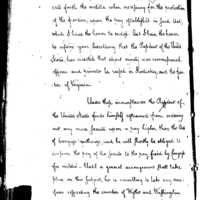 call forth the militia when necessary for the protection
of the frontiers, upon the pay established in said Act,
which I have the honor to enclose. And I have the honor
to inform your Excellency that the President of the United
States has directed that eight ninety non commissioned
officers and privates be raised in Kentucky and the
of Virginia.
Under these circumstances the President of
the United States finds himself restrained from ordering
out any more Scouts upon a pay higher than the
of Congress authorizes, and he will shortly be obliged to
conform the pay of the Scouts to the pay fixed by Congress
for militia. Until a general arrangement shall take
place on this subject, he is unwilling to take any mea-
sures affecting the counties of Wythe and Washington